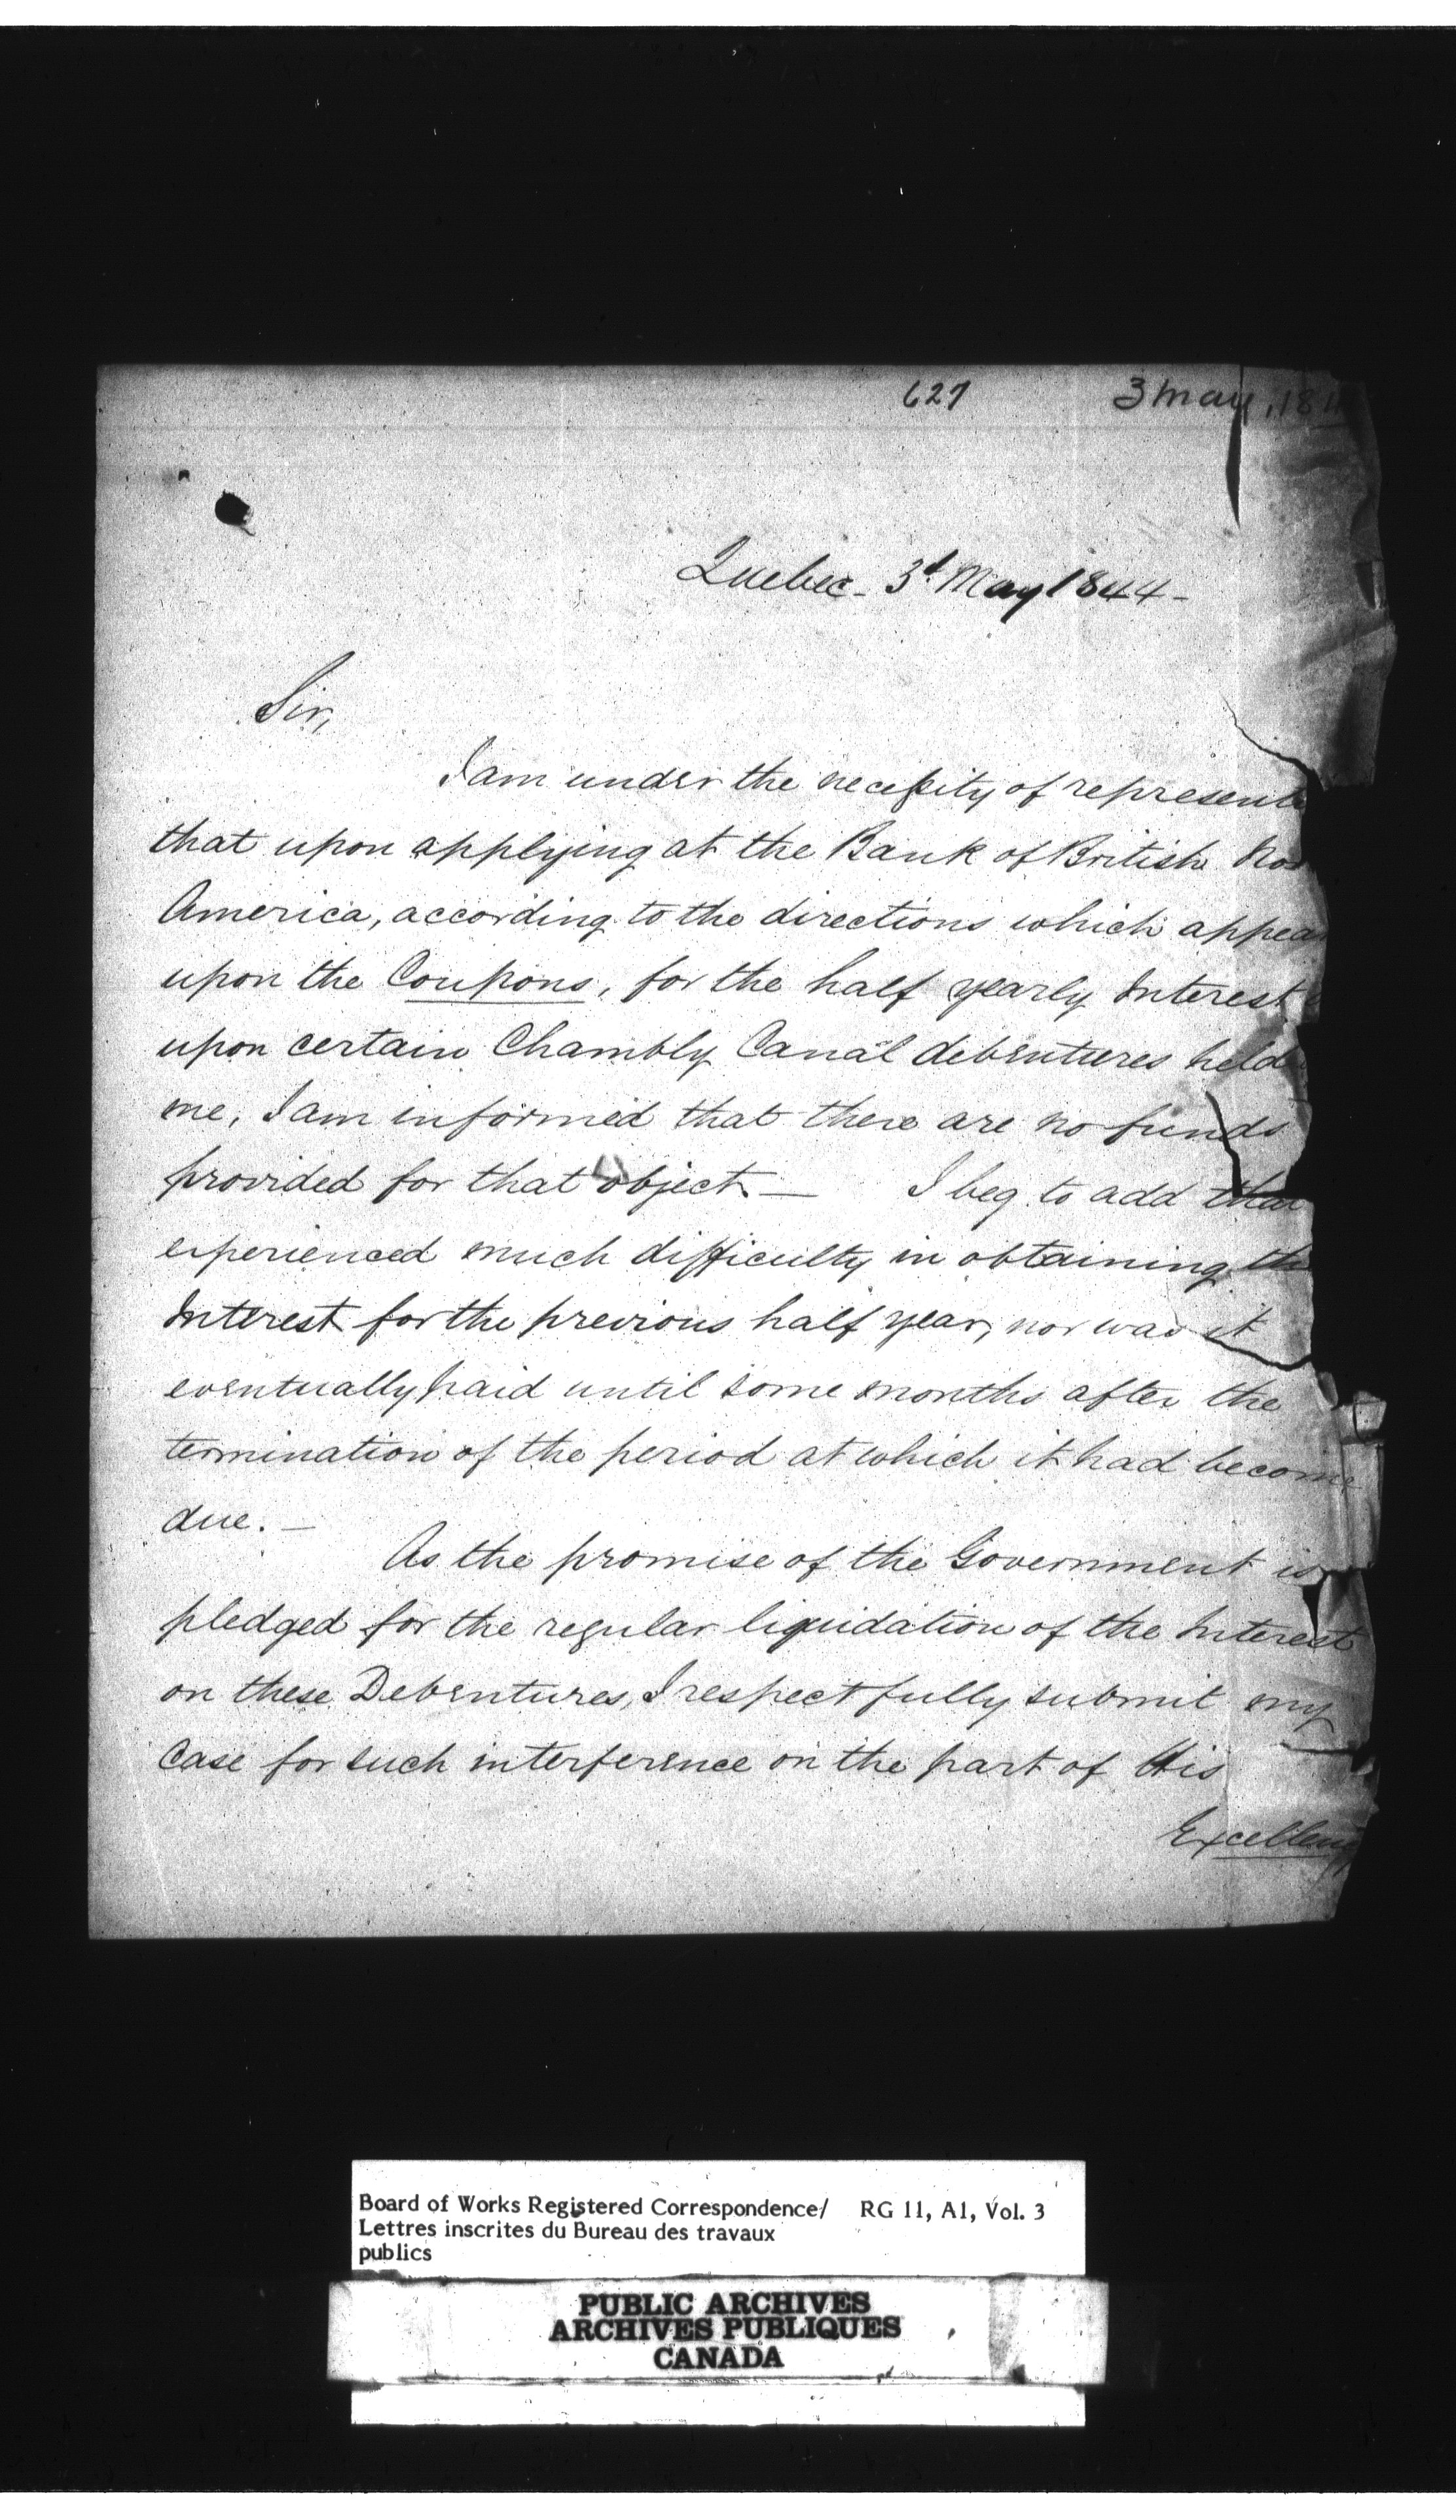 627 3 May, 18
Quebec - 3d May 1844 -
Sir,
I am under the necessity of represent
that upon applying at the Bank of British Nor
America, according to the directions which appea
upon the Coupons, for the half yearly Interest
upon certain Chambly Canal debentures held
me, I am informed that there are no funds
provided for that object. — I beg to add that
experienced much difficulty in obtaining the
Interest for the previous half year, nor was it
eventually paid until some months after the
termination of the period at which it had become
due. —
As the promise of the Government is
pledged for the regular liquidation of the Interest
on these Debentures, I respectfully submit my
Case for such interference on the part of His
Excellency
Board of Works Registered Correspondence/ RG 11, A1, Vol. 3
Lettres inscrites du Bureau des travaux
publics
PUBLIC ARCHIVES
ARCHIVES PUBLIQUES
CANADA